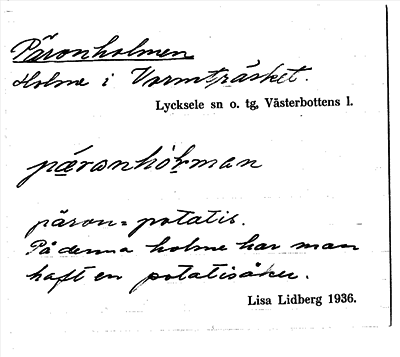 Päronholmen
Holme i Vormträsket.
Lycksele sn o. tg, Västerbottens l.
päron = potatis.
På denna holme har man
haft en potatisåker.
Lisa Lidberg 1936.